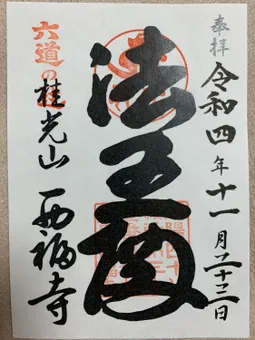 奉拝
令和四年十一月二十三日
法王殿
六道の
桂光山
西福寺